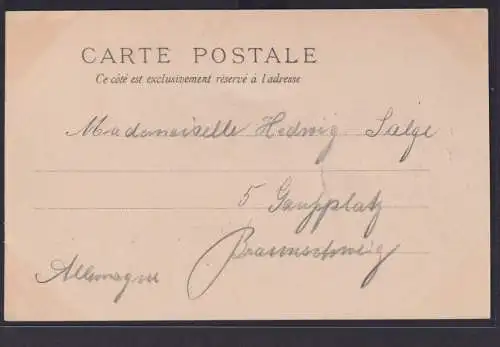 CARTE POSTALE
Ce côté est exclusivement réservé à l'adresse
Mademoiselle Hedwig Salge
5 Gaußplatz
Braunschweig
Allemagne